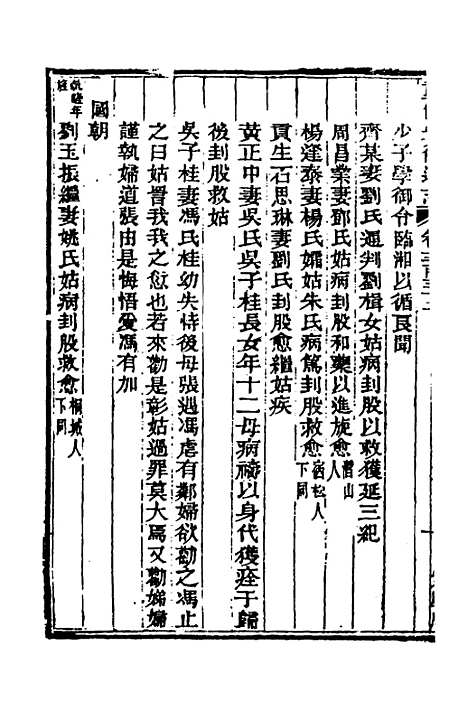 少子學御令臨湘以循良聞
齊某妻劉氏通判劉楫女姑病刲股以救獲延三紀
周昌業妻鄧氏姑病刲股和藥以進旋愈 人
楊逢泰妻楊氏孀姑朱氏病篤刲股救愈 宿松人下同
貢生石思琳妻劉氏刲股愈繼姑疾
黃正中妻吳氏吳子桂長女年十二母病禱以身代獲痊于歸
後刲股救姑
吳子桂妻馮氏桂幼失恃後母張遇馮虐有鄰婦欲勸之馮止
之曰姑詈我我之愆也若來勸是彰姑過罪莫大焉又勸娣婦
謹執婦道張由是悔悟愛馮有加
國朝
劉玉振繼妻姚氏姑病刲股救愈 桐城人下同 乾隆年